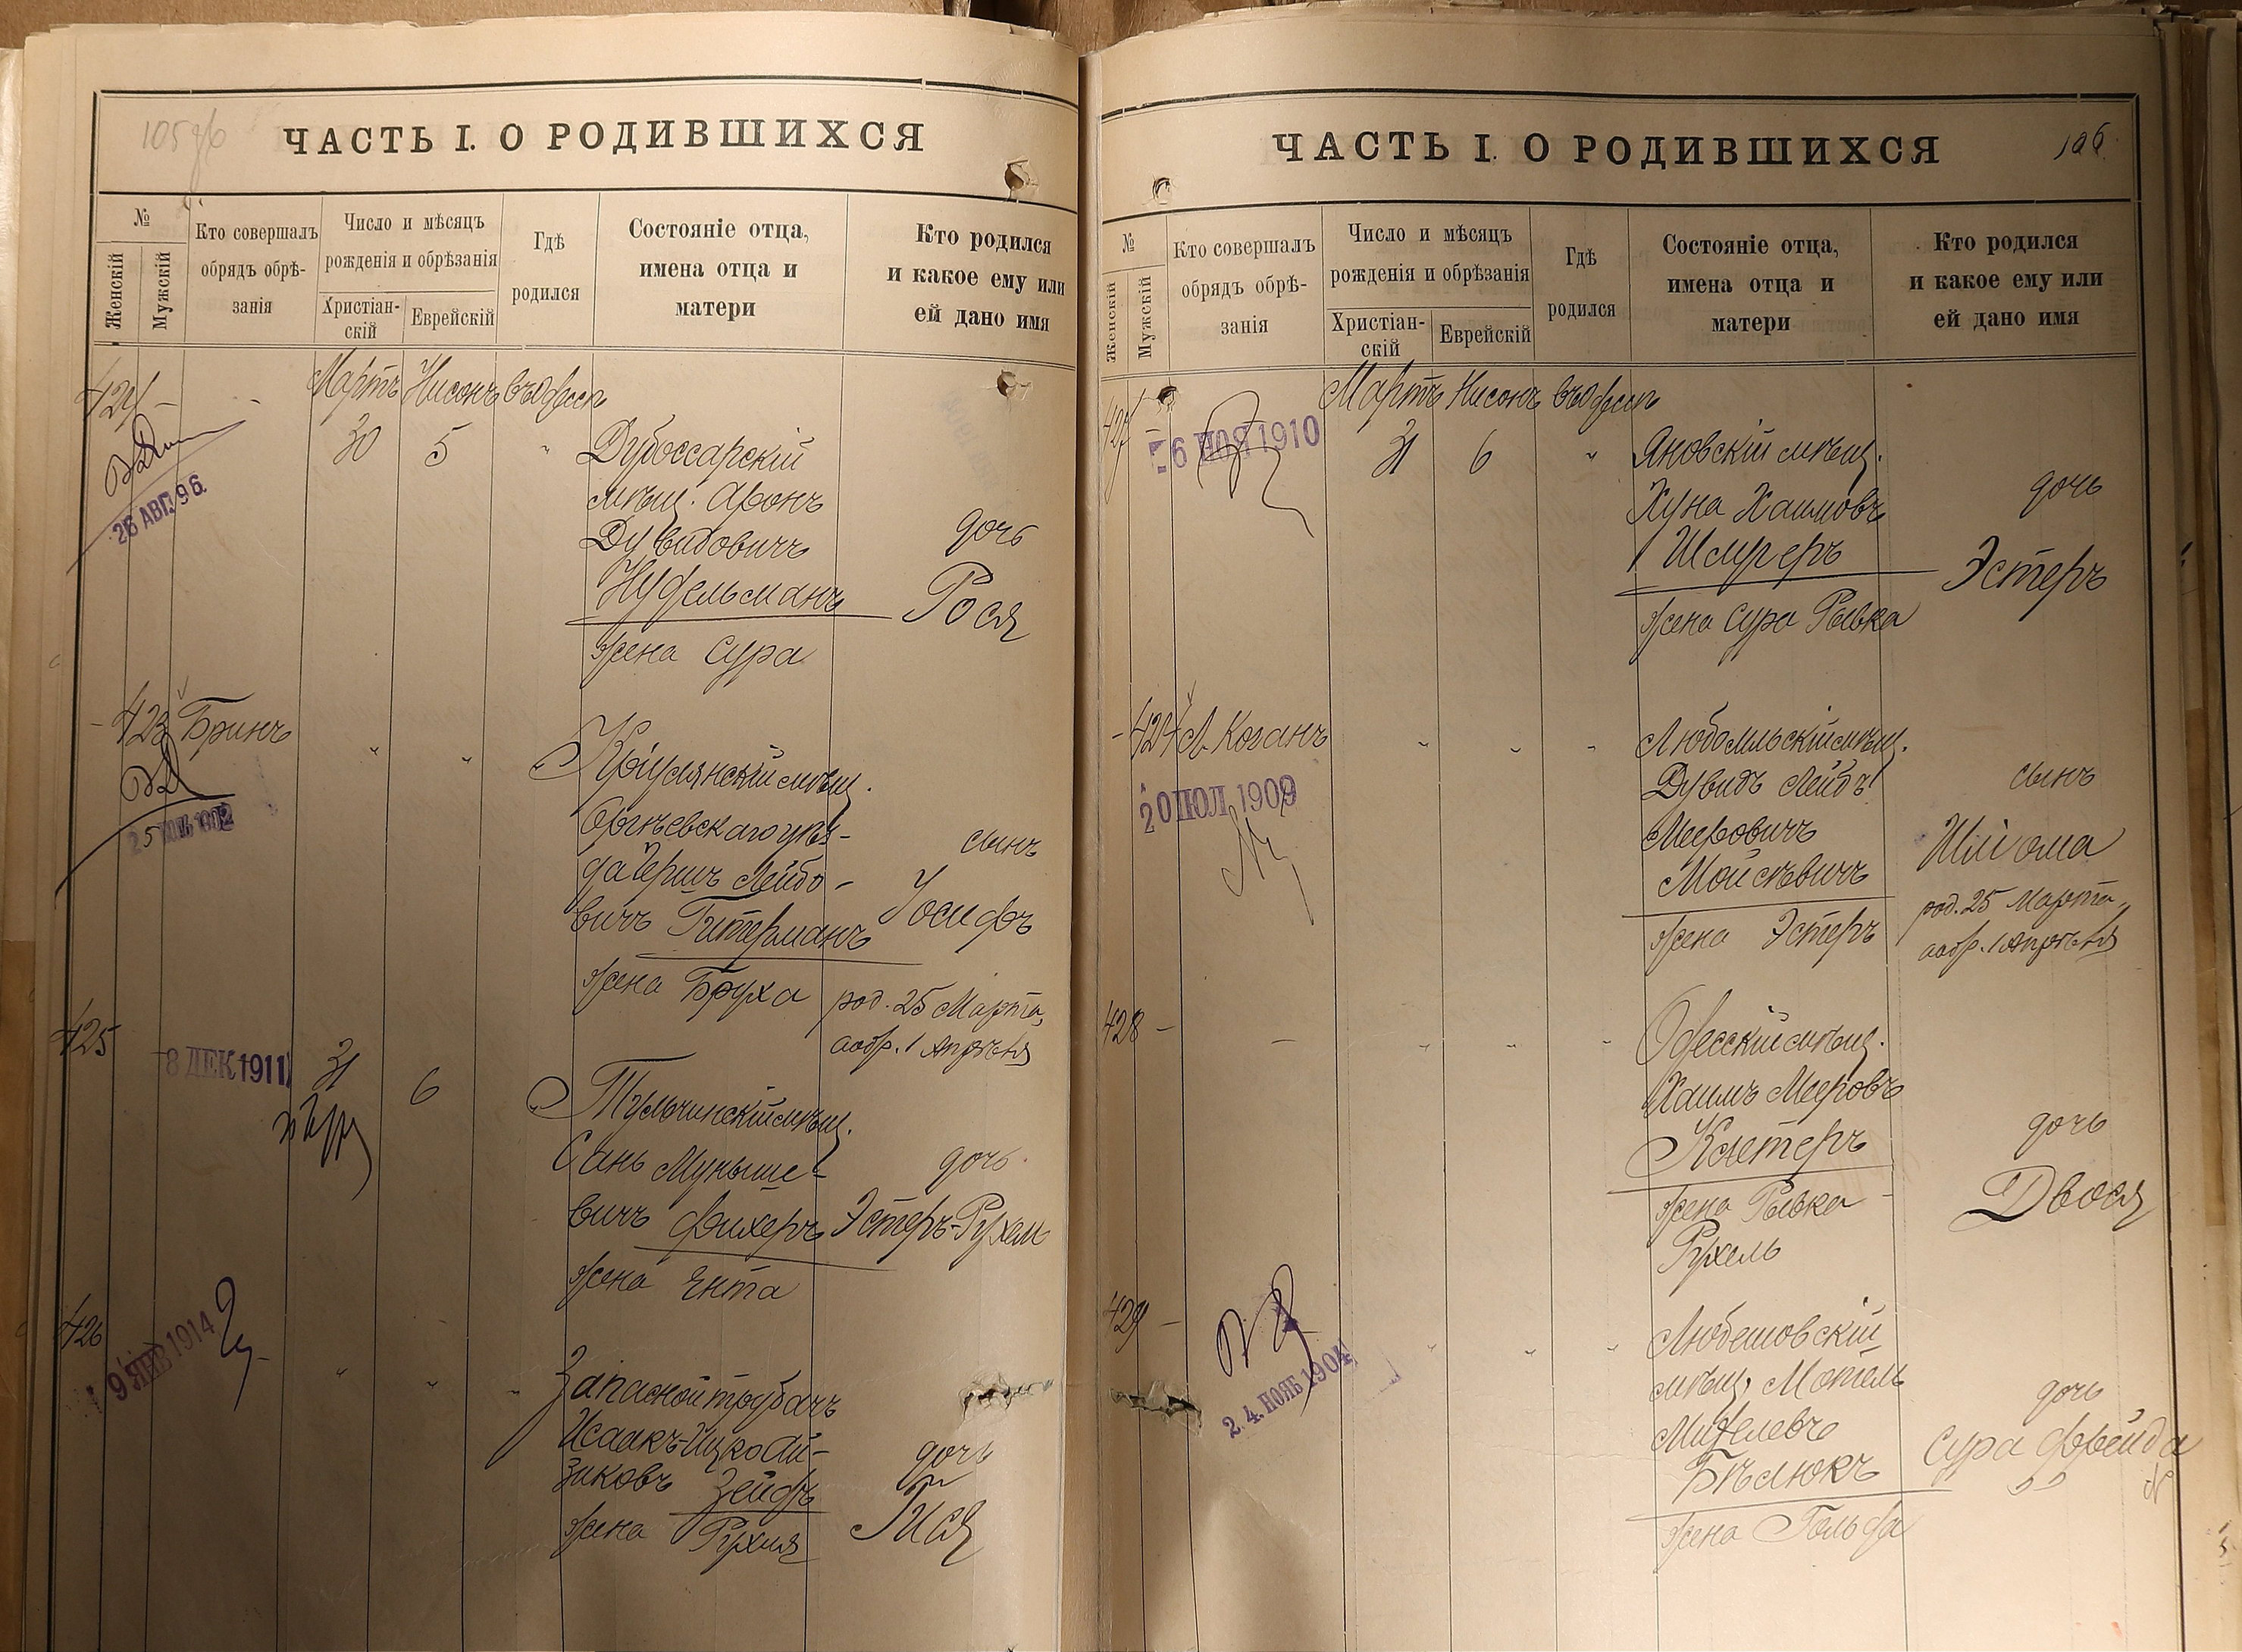 105 об
ЧАСТЬ I. О РОДИВШИХСЯ
№
Женскій
Мужскій
Кто совершалъ
обрядъ обрѣ-
занія
Число и мѣсяцъ
рожденія и обрѣзанія
Христіан-
скій
Еврейскій
Гдѣ
родился
Состояніе отца,
имена отца и
матери
Кто родился
и какое ему или
ей дано имя
424 -
Мартъ Нисонъ въ Одессѣ
30 5 "
26 АВГ. 96
Дубоссарскій
мѣщ. Аронъ
Дувидовичъ
Нудельманъ
жена Сура
дочь
Рося
- 423 Бринъ
" "
1902
мѣщ.
Оргѣевскаго уѣз-
да Гершъ Лейбо-
вичъ Гитерманъ
жена Бруха
сынъ
Іосифъ
род. 25 Марта,
а обр. 1 Апрѣля
425
8 ДЕК 1911
31 6 "
Тульчинскій мѣщ.
Сань Муныше-
вичъ Фихеръ
жена Ента
дочь
Эстеръ-Рухель
426
9 ЯНВ 1914
" " "
Запасной трубачъ
Исаакъ-Ицко Ай-
зиковъ Зейфъ
жена Рухля
дочь
Гися
ЧАСТЬ I. О РОДИВШИХСЯ
106.
№
Женскій
Мужскій
Кто совершалъ
обрядъ обрѣ-
занія
Число и мѣсяцъ
рожденія и обрѣзанія
Христіан-
скій
Еврейскій
Гдѣ
родился
Состояніе отца,
имена отца и
матери
Кто родился
и какое ему или
ей дано имя
427
6 НОЯ 1910
Мартъ Нисонъ въ Одессѣ
31 6 "
Яновскій мѣщ.
Хуна Хаимовъ
Шмуреръ
жена Сура Рывка
дочь
Эстеръ
- 424 Л. Коганъ
20 ІЮЛ. 1909
" " "
Любомльскій мѣщ.
Дувидъ Лейбъ
Мееровичъ
Мойсѣвичъ
жена Эстеръ
сынъ
Шліома
род. 25 Марта,
а обр. 1 Апрѣля
428 -
- " " "
Одесскій мѣщ.
Хаимъ Мееровъ
Клетеръ
жена Рывка
Рухель
дочь
Двося
429 -
24. НОЯБ 1904
" " "
Любешовскій
мѣщ. Мотель
Бѣлюкъ
жена Гольда
дочь
Сура Фрейда